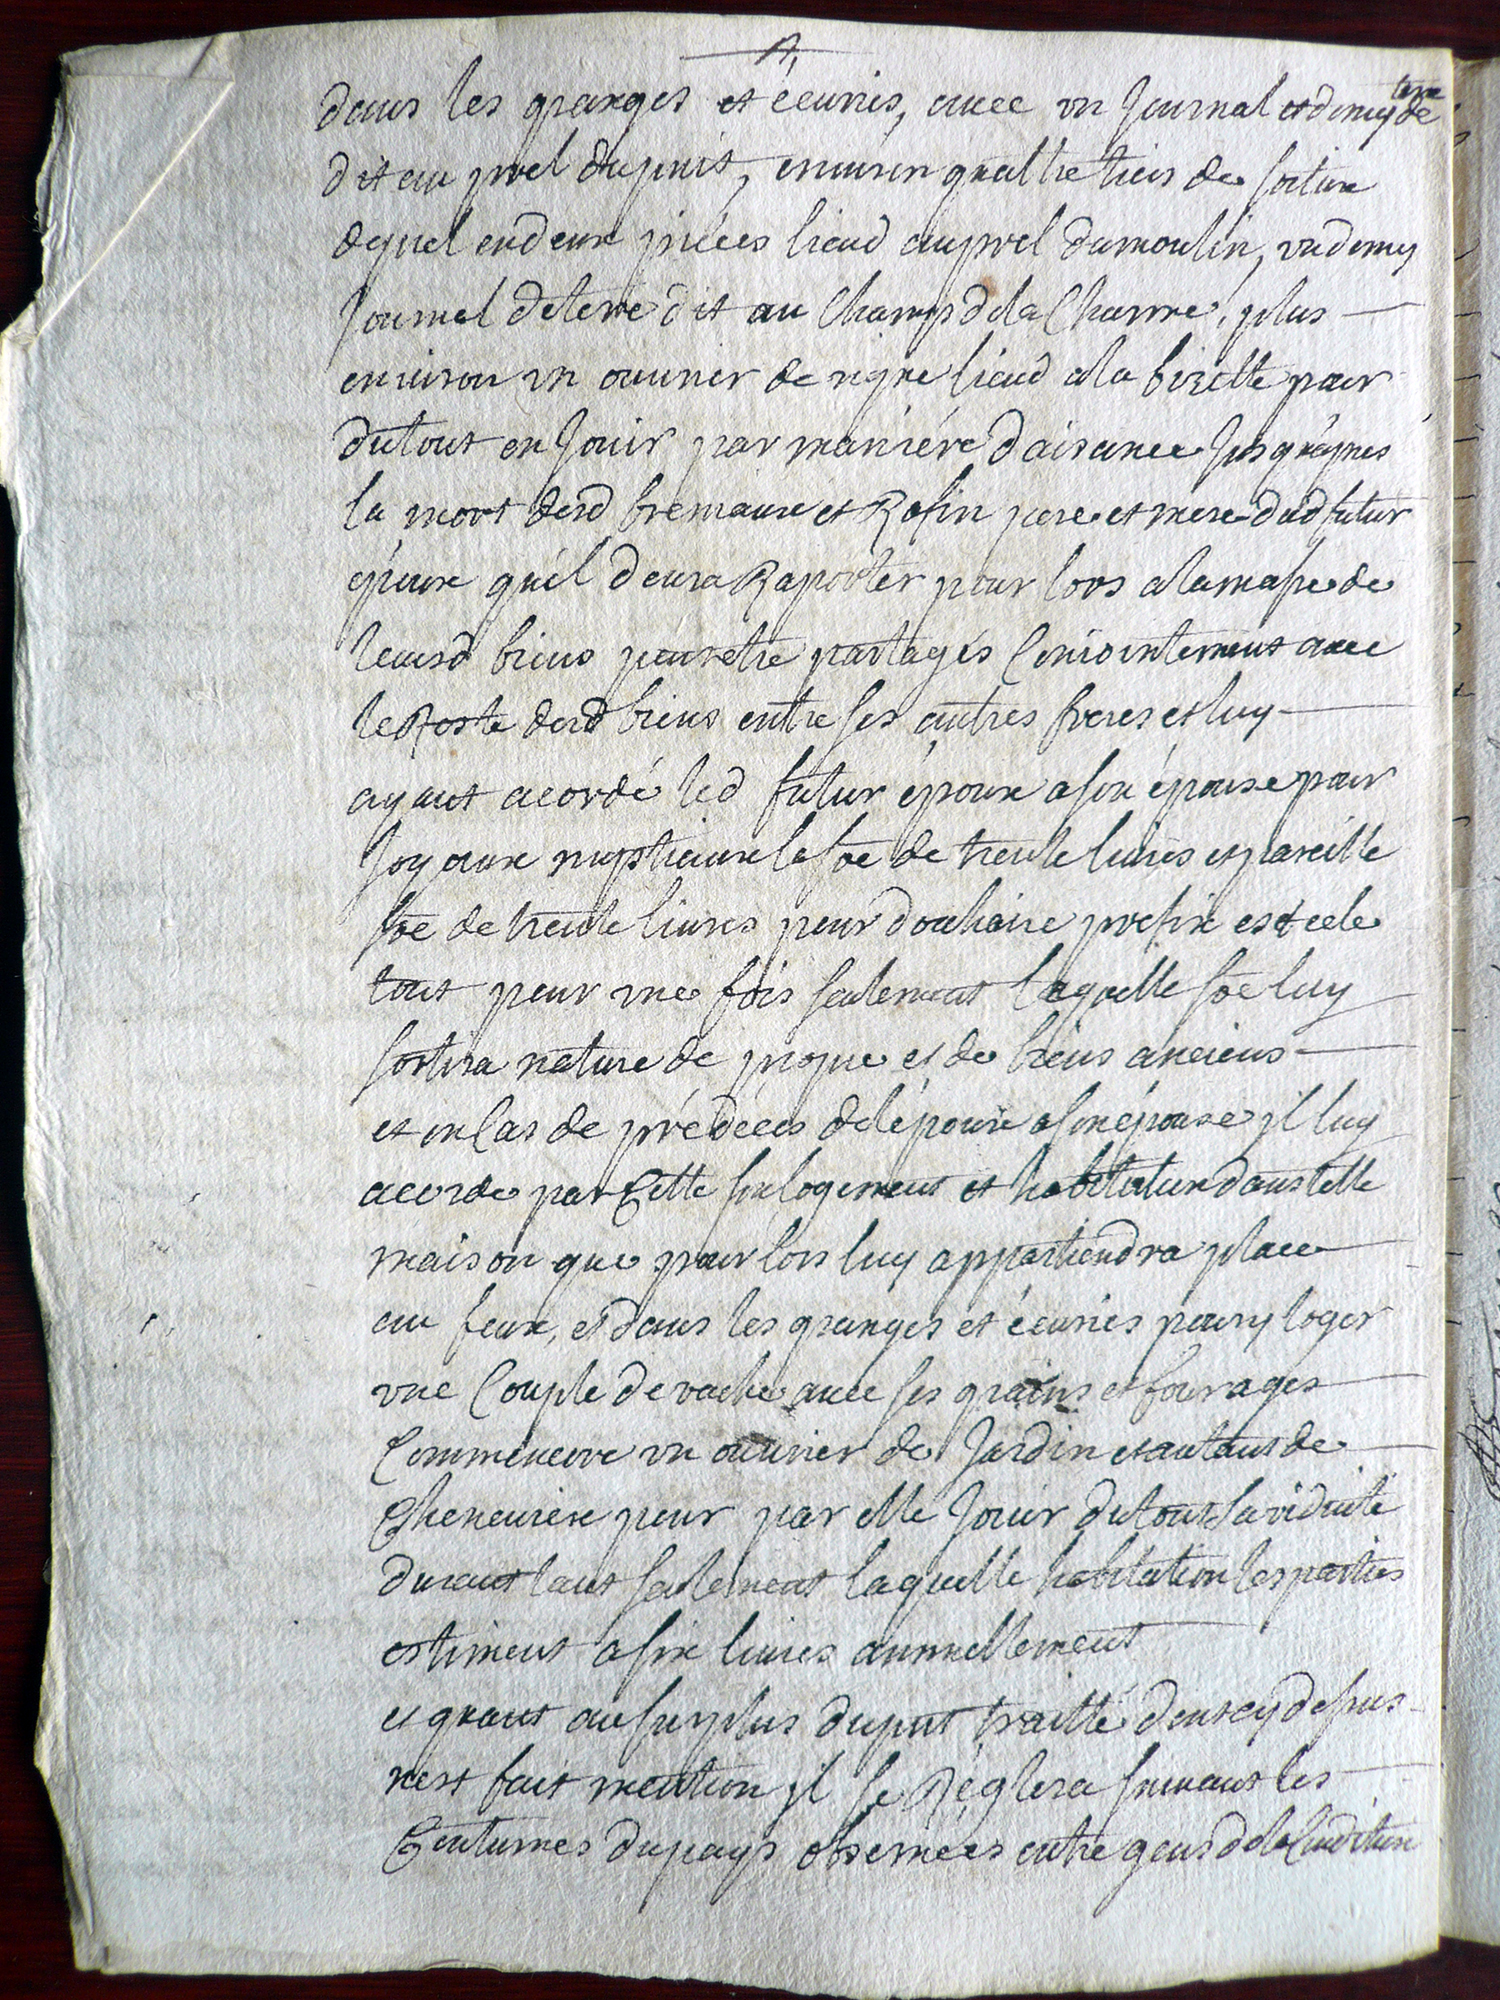 dans les granges et écuries, avec un Journal et demy de terre
dit au prel dupuis, environ quattre tiers de soiture
de prel en deux piéces lieud au prel du moulin, un demy
Journal de terre dit au Champ de la Charme, plus
environ un ouvrier de vigne lieud a la bizette pour
du tout en Jouir par maniére daisance Jusquàpres
la mort desd bremaux et Rosin pere et mere dud futur
epoux qu'il devra Raporter pour lors a la masse de
leursd biens pour être partagés Conjointement avec
le Reste desd biens entre ses autres freres et luy
ayant acordé led futur époux a son épouse pour
Joyaux nuptieaux la soe de trente livres et pareille
soe de trente livres pour douhaire prefix et cele
tout pour une fois seulement laquelle soe luy
sortira nature de propre et de biens anciens
et en Cas de prédécés de lépoux a son épouse il luy
acorde par Cette son logement et habitation dans telle
maison que pour lors luy appartiendra place
au feux, et dans les granges et écuries pour y loger
une Couple de vache avec ses grains et fourages
Comme encore un ouvrier de Jardin et autant de
Cheneviere pour par elle Jouir du tout sa viduité
durant tant seulement laquelle habitation les parties
estiment a six livres annuellement
et quant au surplus du pnt traitté dont cy dessus
nest fait mention il se Réglera suivant les
Coutumes du pays observées entre gens de la Condition